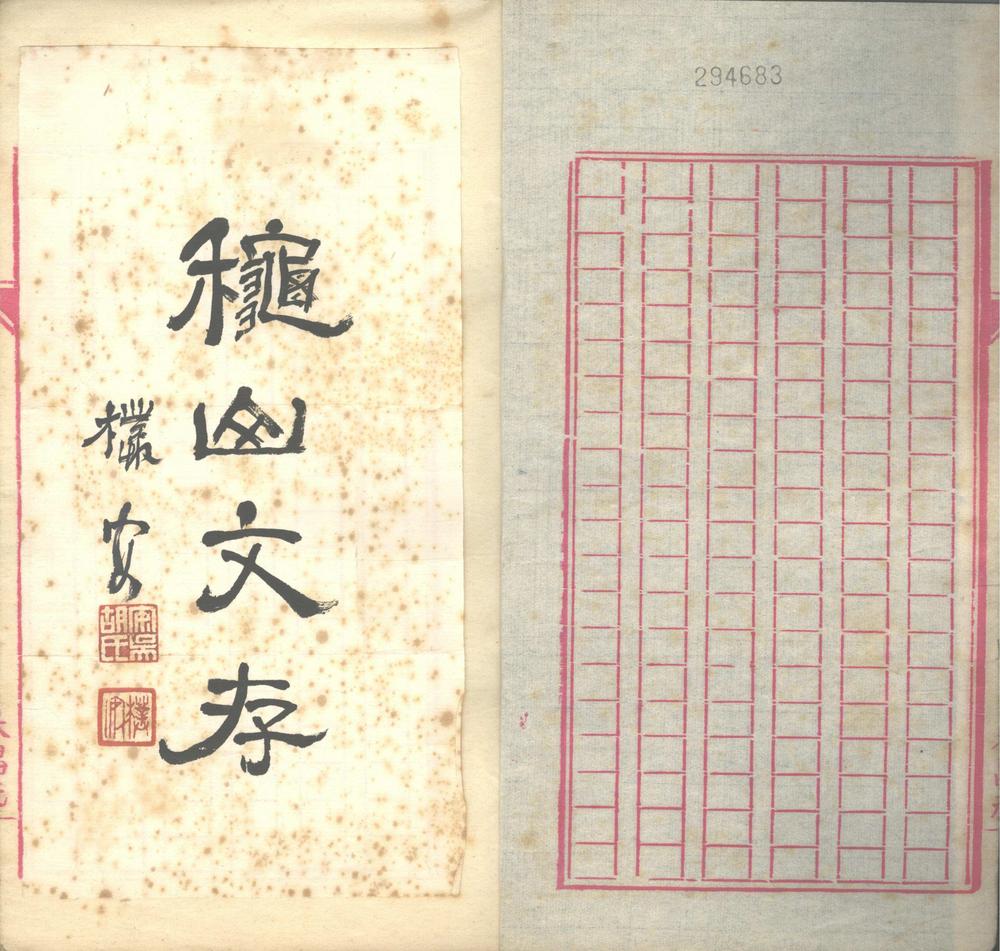 294683
龝山文存
樸安
安吳胡氏
樸安